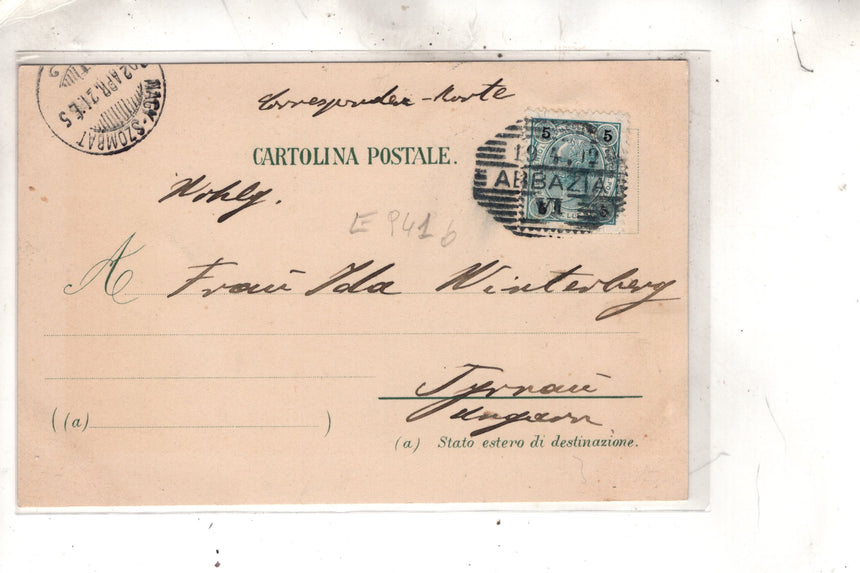 NAGY-SZOMBAT
902 APR. 21
Correspondenz-Karte
CARTOLINA POSTALE.
5 5
19 4 02
ABBAZIA
5
Wohlg.
E 941 b
A Frau Ida Winterberg
Tyrnau
Ungarn
((a) )
(a) Stato estero di destinazione.